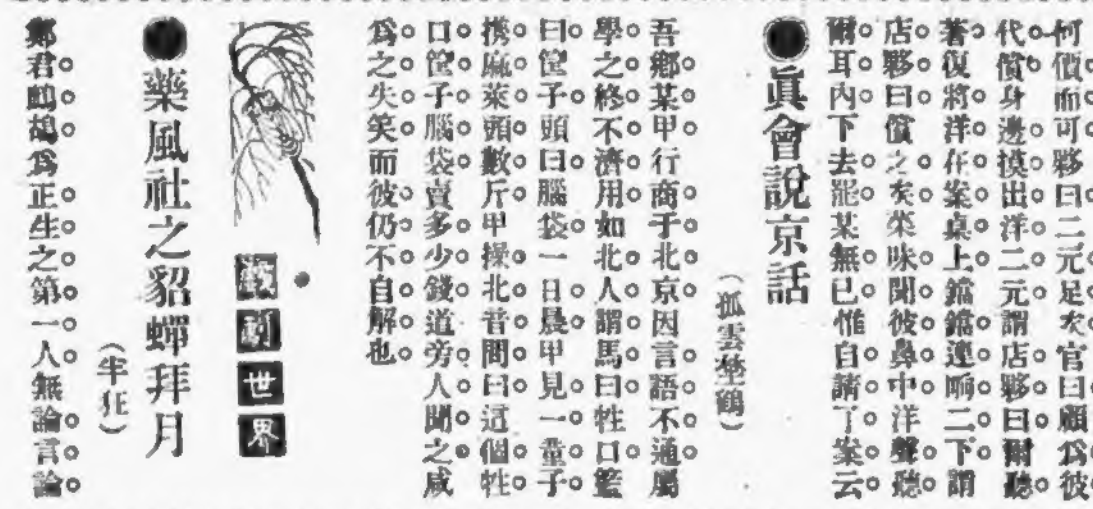 何價而可夥曰二元足矣官曰願爲彼
代償身邊摸出洋二元謂店夥曰爾聽
著復將洋在案桌上鐺鐺連响二下謂
店夥曰償之矣菜味聞彼鼻中洋聲聽
爾耳內下去罷某無已惟自請了案云
●眞會說京話
（孤雲埜鶴）
吾鄉某甲行商于北京因言語不通屬
學之終不濟用如北人謂馬曰牲口籃
曰筐子頭曰腦袋一日晨甲見一童子
携麻菜頭數斤甲操北音問曰這個牲
口筐子腦袋賣多少錢道旁人聞之咸
爲之失笑而彼仍不自解也
世界
●藥風社之貂蟬拜月
（半狂）
鄭君鷓鴣爲正生之第一人無論言論